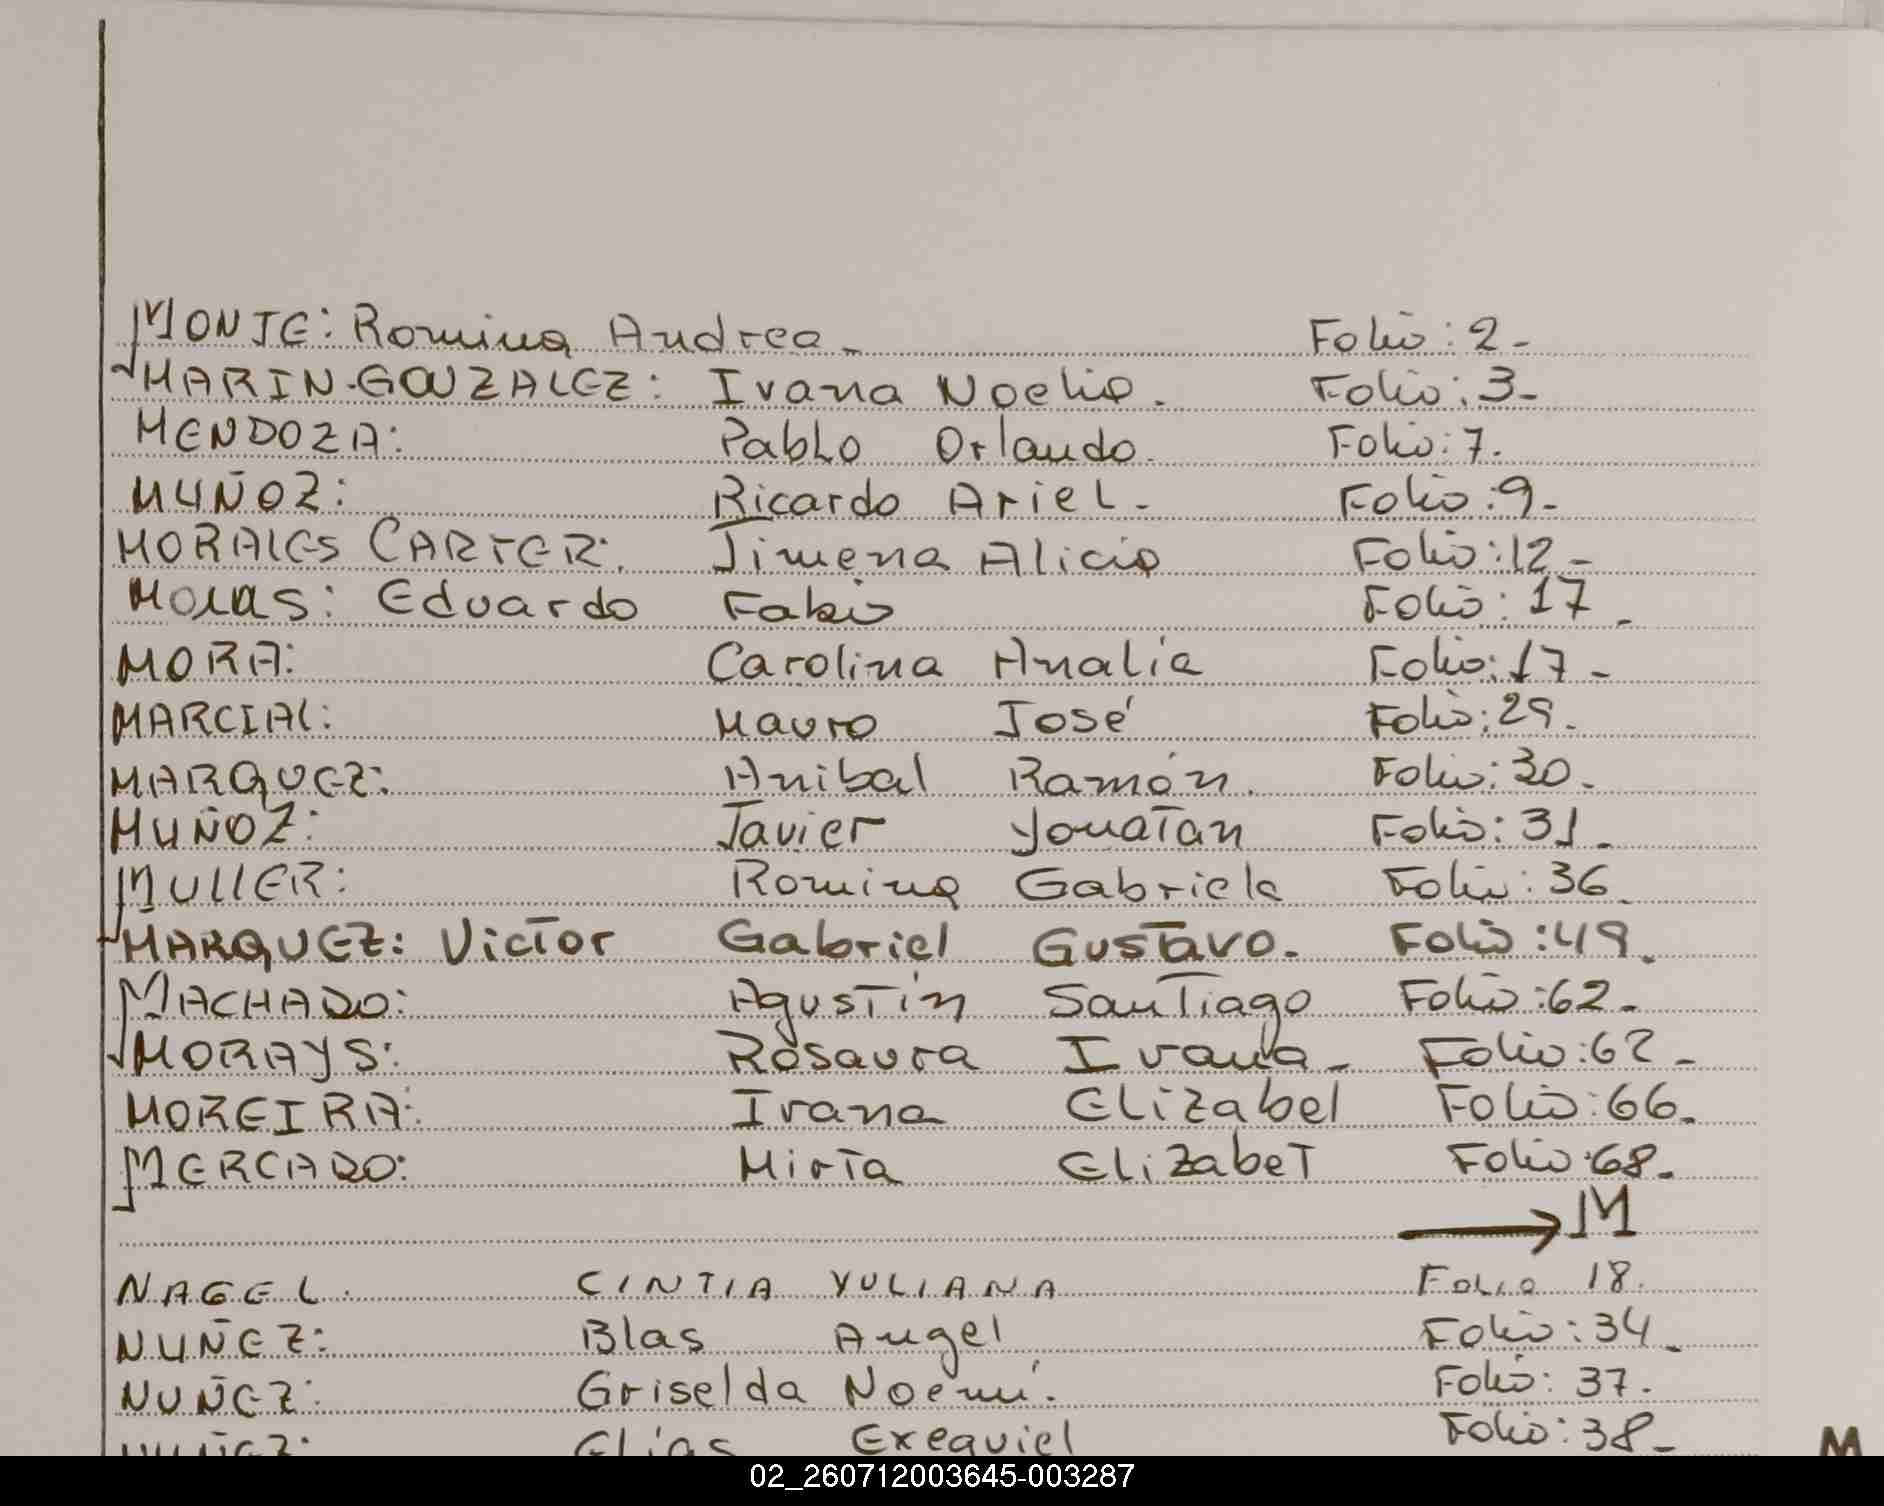 MONJE: Romina Andrea - Folio: 2-
MARIN-GONZALEZ: Ivana Noelia. Folio: 3-
MENDOZA: Pablo Orlando. Folio: 7.
MUÑOZ: Ricardo Ariel- Folio: 9-
MORALES CARTER: Jimena Alicia Folio: 12-
Molas: Eduardo Fabio Folio: 17-
MORA: Carolina Analia Folio: 17-
MARCIAL: Mauro José Folio: 29.
MARQUEZ: Anibal Ramón. Folio: 30.
MUÑOZ: Javier Yonatan Folio: 31.
MULLER: Romina Gabriela Folio: 36.
MARQUEZ: Victor Gabriel Gustavo. Folio: 49.
MACHADO: Agustín Santiago Folio: 62-
MORAYS: Rosaura Ivana- Folio: 62-
MOREIRA: Ivana Elizabel Folio: 66.
MERCADO: Mirta Elizabet Folio: 68-
→ M
NAGEL. CINTIA YULIANA FOLIO 18.
NUÑEZ: Blas Angel Folio: 34-
NUÑEZ: Griselda Noemí. Folio: 37.
NUÑEZ: Elias Exequiel Folio: 38-
M
02_260712003645-003287